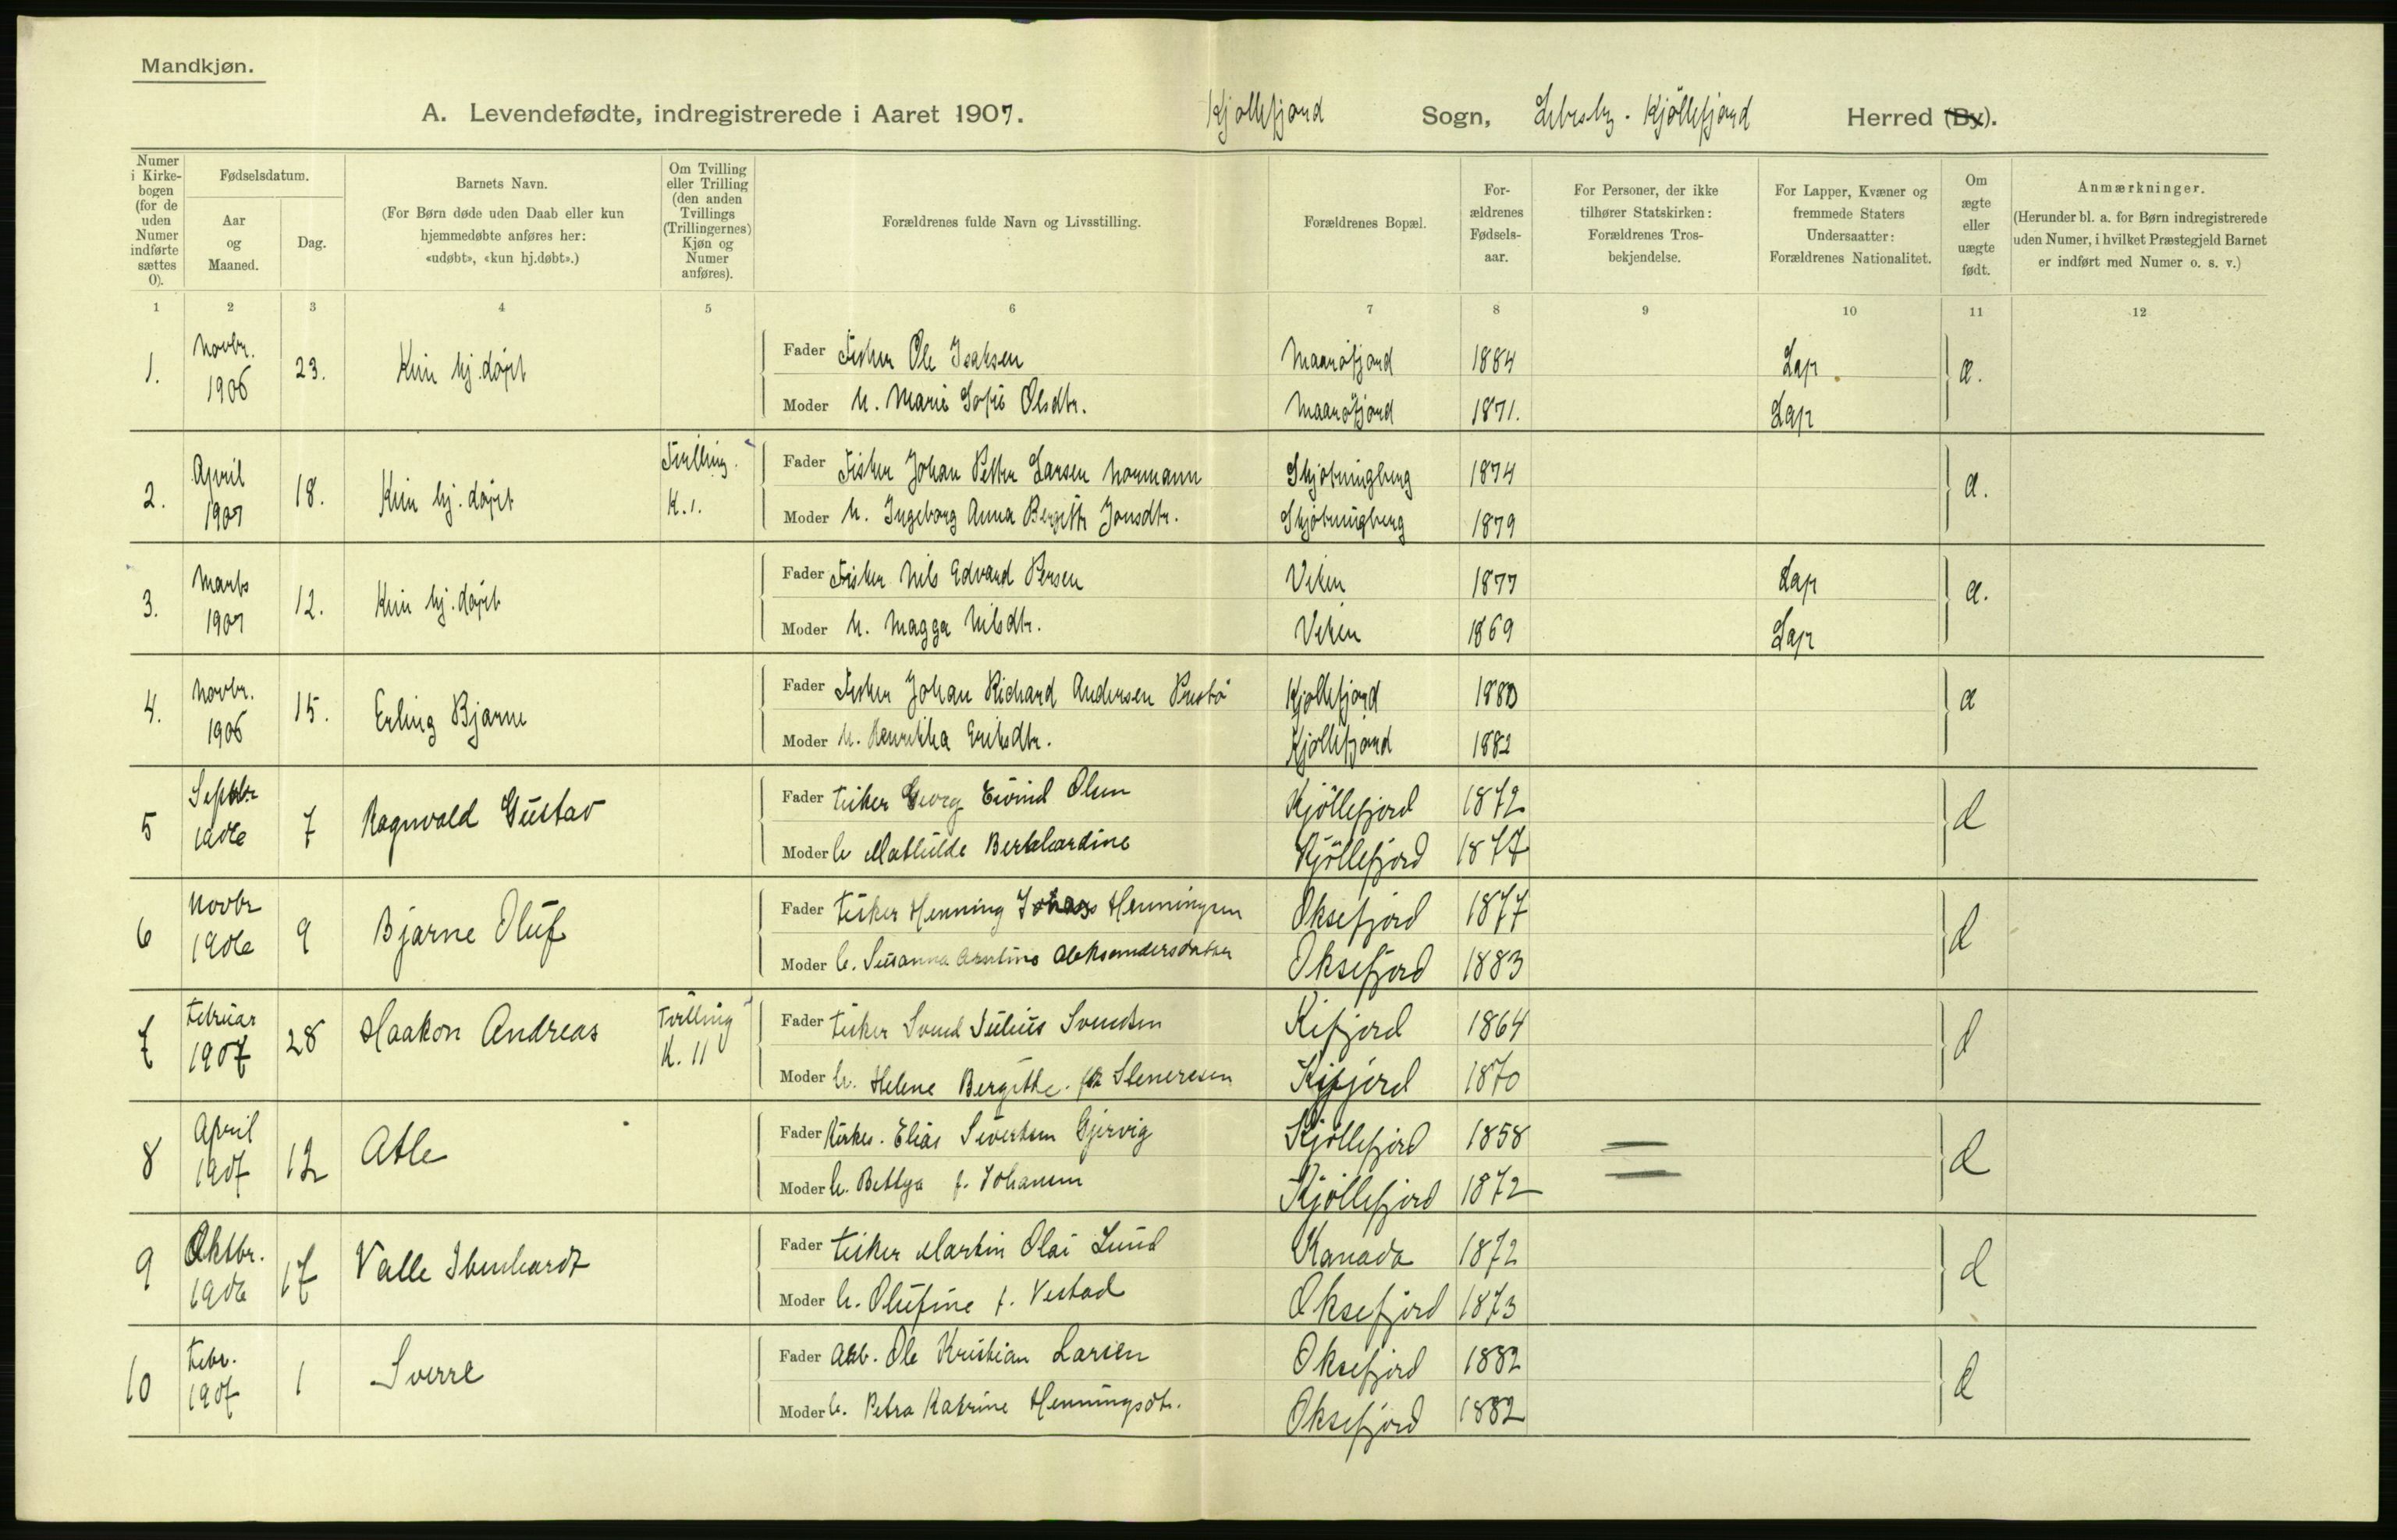 Mandkjøn.
A. Levendefødte, indregistrerede i Aaret 1907. Kjøllefjord Sogn, Lebesby-Kjøllefjord Herred (By).
Numer i Kirke-bogen (for de uden Numer indførte sættes 0).
Fødselsdatum.
Aar og Maaned.
Dag.
Barnets Navn.
(For Børn døde uden Daab eller kun hjemmedøbte anføres her: «udøbt», «kun hj.døbt».)
Om Tvilling eller Trilling (den anden Tvillings (Trillingernes) Kjøn og Numer anføres).
Forældrenes fulde Navn og Livsstilling.
Forældrenes Bopæl.
For-ældrenes Fødsels-aar.
For Personer, der ikke tilhører Statskirken: Forældrenes Tros-bekjendelse.
For Lapper, Kvæner og fremmede Staters Undersaatter: Forældrenes Nationalitet.
Om ægte eller uægte født.
Anmærkninger.
(Herunder bl. a. for Børn indregistrerede uden Numer, i hvilket Præstegjeld Barnet er indført med Numer o. s. v.)
1 2 3 4 5 6 7 8 9 10 11 12
1. Novbr. 1906 23. Kun hj.døpt Fader Fisker Ole Isaksen Maarøfjord 1884 Lap æ.
Moder H. Marie Sofie Olsdtr. Maarøfjord 1871. Lap
2. April 1907 18. Kun hj.døpt Tvilling. K.1. Fader Fisker Johan Petter Larsen Normann Skjøtningberg 1874 æ.
Moder H. Ingeborg Anna Bergitte Jonsdtr. Skjøtningberg 1879
3. Marts 1907 12. Kun hj.døpt Fader Fisker Nils Edvard Persen Veien 1877 Lap æ.
Moder H. Magga Nilsdtr. Veien 1869 Lap
4. Novbr. 1906 15. Erling Bjarne Fader Fisker Johan Richard Andersen Kjøllefjord 1880 æ
Moder H. Henrikka Eriksdtr. Kjøllefjord 1882
5 Septbr 1906 7 Ragnvald Gustav Fader Fisker Georg Eivind Olsen Kjøllefjord 1872 æ
Moder h Mathilde Bernhardine Kjøllefjord 1877
6 Novbr 1906 9 Bjarne Oluf Fader Fisker Henning Johans Henningsen Oksefjord 1877 æ
Moder h. Susanna Aleksandersdatter Oksefjord 1883
7 Februar 1907 28 Haakon Andreas Tvilling K. 11 Fader Fisker Svend Julius Svendsen Kifjord 1864 æ
Moder h. Helene Bergithe f. Steneresen Kifjord 1870
8 April 1907 12 Atle Fader Kirkes. Elias Sivertsen Gjervig Kjøllefjord 1858 — æ
Moder h. Bettya f. Johansen Kjøllefjord 1872 —
9 Oktbr. 1906 17 Valle Ibenhardt Fader Fisker Martin Olai Lund Kanada 1872 æ
Moder h. Olufine f. Vestad Oksefjord 1873
10 Febr. 1907 1 Sverre Fader Arb. Ole Kristian Larsen Oksefjord 1882 æ
Moder h. Petra Katrine Henningsdtr. Oksefjord 1882